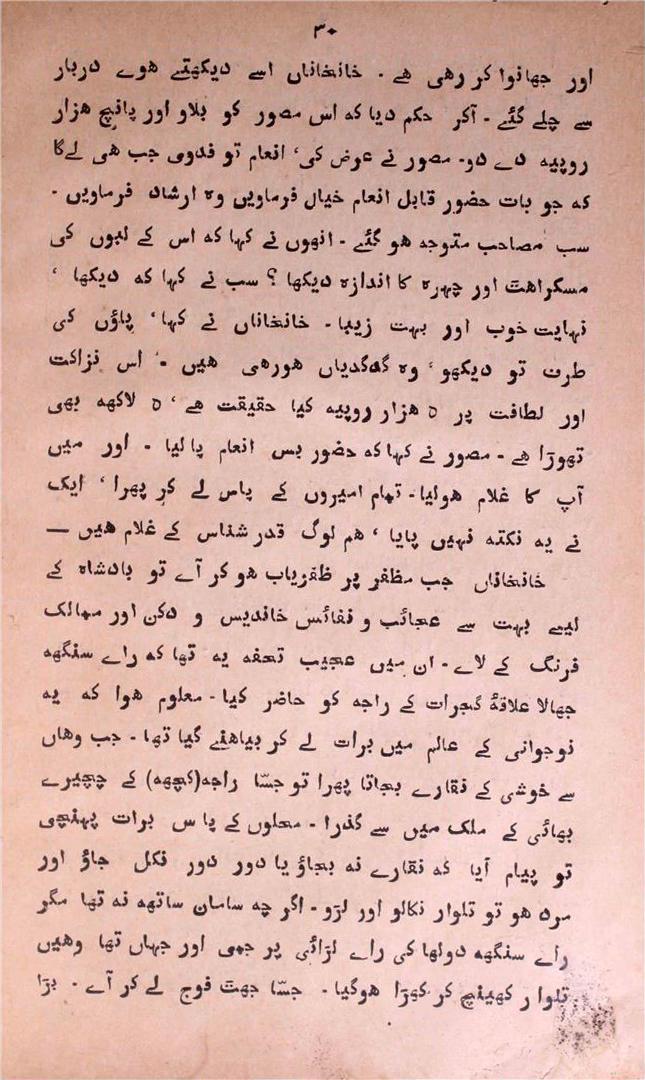 ۳۰
اور جھانوا کر رهی هے ۔ خانخاناں اسے دیکھتے هوے دربار
سے چلے گئے ۔ آکر حکم دیا که اس مصور کو بلاو اور پانچ هزار
روپیه دے دو۔ مصور نے عرض کی، انعام تو فدوی جب هی لے گا
که جو بات حضور قابل انعام خیال فرماویں وه ارشاد فرماویں ۔
سب مصاحب متوجه هو گئے ۔ انهوں نے کها که اس کے لبوں کی
مسکراهت اور چهره کا اندازه دیکھا ؟ سب نے کها که دیکھا ،
نهایت خوب اور بهت زیبا ۔ خانخاناں نے کها، پاؤں کی
طرف تو دیکھو، وه گدگدیاں هورهی هیں ۔ اس نزاکت
اور لطافت پر ٥ هزار روپیه کیا حقیقت هے، ٥ لاکھه بھی
تھوڑا هے ۔ مصور نے کها که حضور بس انعام پالیا ۔ اور میں
آپ کا غلام هولیا۔ تمام امیروں کے پاس لے کر پھرا، ایک
نے یه نکته نهیں پایا، هم لوگ قدر شناس کے غلام هیں —
خانخاناں جب مظفر پر ظفریاب هو کر آے تو بادشاه کے
لیے بهت سے عجائب و نفائس خاندیس و دکن اور ممالک
فرنگ کے لاے ۔ ان میں عجیب تحفه یه تھا که راے سنگھه
جھالا علاقۀ گجرات کے راجه کو حاضر کیا ۔ معلوم هوا که یه
نوجوانی کے عالم میں برات لے کر بیاهنے گیا تھا ۔ جب وهاں
سے خوشی کے نقارے بجاتا پھرا تو جسّا راجه (کچھه) کے چچیرے
بھائی کے ملک میں سے گذرا ۔ محلوں کے پاس برات پهنچی
تو پیام آیا که نقارے نه بجاؤ یا دور دور نکل جاؤ اور
مرد هو تو تلوار نکالو اور لڑو ۔ اگر چه سامان ساتھه نه تھا مگر
راے سنگھه دولھا کی راے لڑائی پر جمی اور جهاں تھا وهیں
تلوار کھینچ کر کھڑا هوگیا ۔ جسّا جھٹ فوج لے کر آے ۔ بڑا